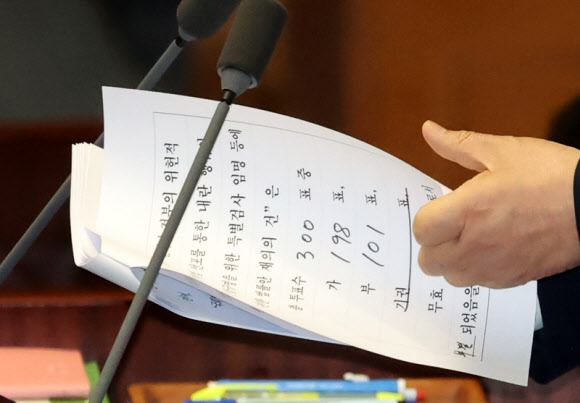 정부의 위헌적
선포를 통한 내란 행위의
위한 특별검사 임명 등에
법률안 재의의 건" 은
총투표수 300 표 중
가 198 표,
부 101 표,
기권 표,
무효
되었음을